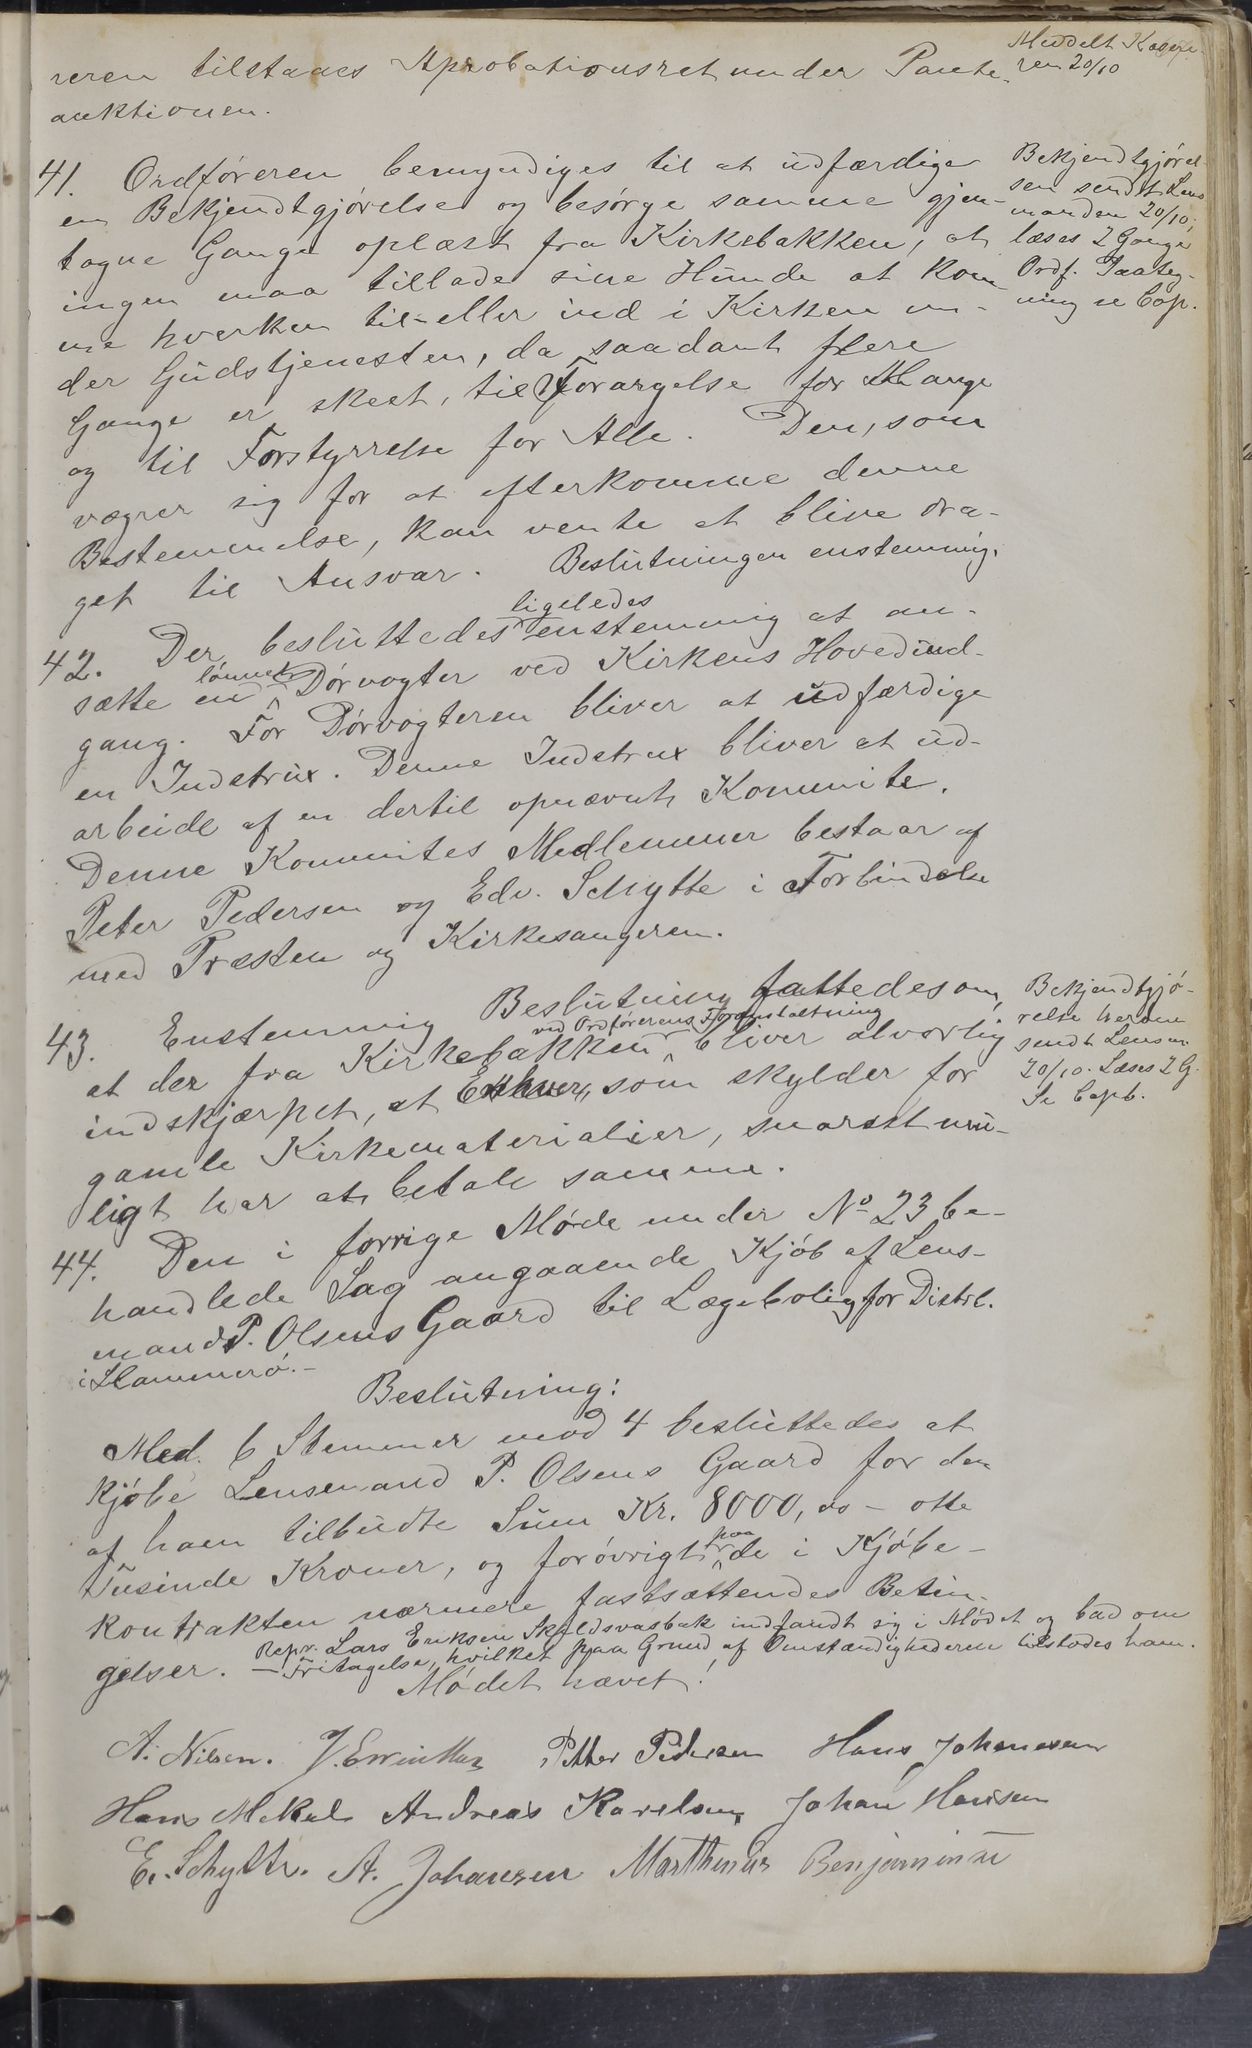 reren tilstaaes Aprobationsret under Pante-
auktionen.
Meddelt Kasse-
ren 20/10
41. Ordføreren bemyndiges til at udfærdige
en Bekjendtgjørelse og besørge samme gjen-
tagne Gange oplæst fra Kirkebakken, at
ingen maa tillade sine Hunde at kom-
me hverken til eller ind i Kirken un-
der Gudstjenesten, da saadant flere
Gange er skeet, til Forargelse for Mange
og til Forstyrrelse for Alle. Den, som
vægrer sig for at efterkomme denne
Bestemmelse, kan vente at blive dra-
get til Ansvar. Beslutningen enstemmig.
Bekjendtgjørel-
sen sendt Lens-
manden 20/10;
læses 2 Gange
Ordf. Paateg-
ning se Cop.
42. Der besluttedes ligeledes enstemmig at an-
sætte en lønnet Dørvogter ved Kirkens Hovedind-
gang. For Dørvogteren bliver at udfærdige
en Indstrux. Denne Indstrux bliver at ud-
arbeide af en dertil opnævnt Kommite.
Denne Kommites Medlemmer bestaar af
Peter Pedersen og Edv. Schytte i Forbindelse
med Præsten og Kirkesangeren.
43. Enstemmig Beslutning fattedes om,
at der fra Kirkebakken ved Ordførerens Foranstaltning bliver alvorlig
indskjærpet, at Enhver, som skylder for
gamle Kirkematerialier, snarest mu-
ligt har at betale samme.
Bekjendtgjø-
relse herom
sendt Lensm.
20/10. Læses 2 G.
Se Copb.
44. Den i forrige Møde under No 23 be-
handlede Sag angaaende Kjøb af Lens-
mand P. Olsens Gaard til Lægebolig for Distr.
i Hammerø.-
Beslutning:
Med 6 Stemmer mod 4 besluttedes at
kjøbe Lensmand P. Olsens Gaard for den
af ham tilbudte Sum Kr. 8000,00 - otte
Tusinde Kroner, og forøvrigt paa de i Kjøbe-
kontrakten nærmere fastsættendes Betin-
gelser. Repr. Lars Eriksen Skjeldsvasbak indfandt sig i Mødet og bad om
- Fritagelse, hvilket paa Grund af Omstændighederne tilstodes ham.
Mødet hævet!
A. Nilsen. Petter Pedersen Hans Johanesen
Hans Mekal Andreas Karelsen, Johan Hansen
E. Schytte. A. Johansen Marthinus Benjaminsen